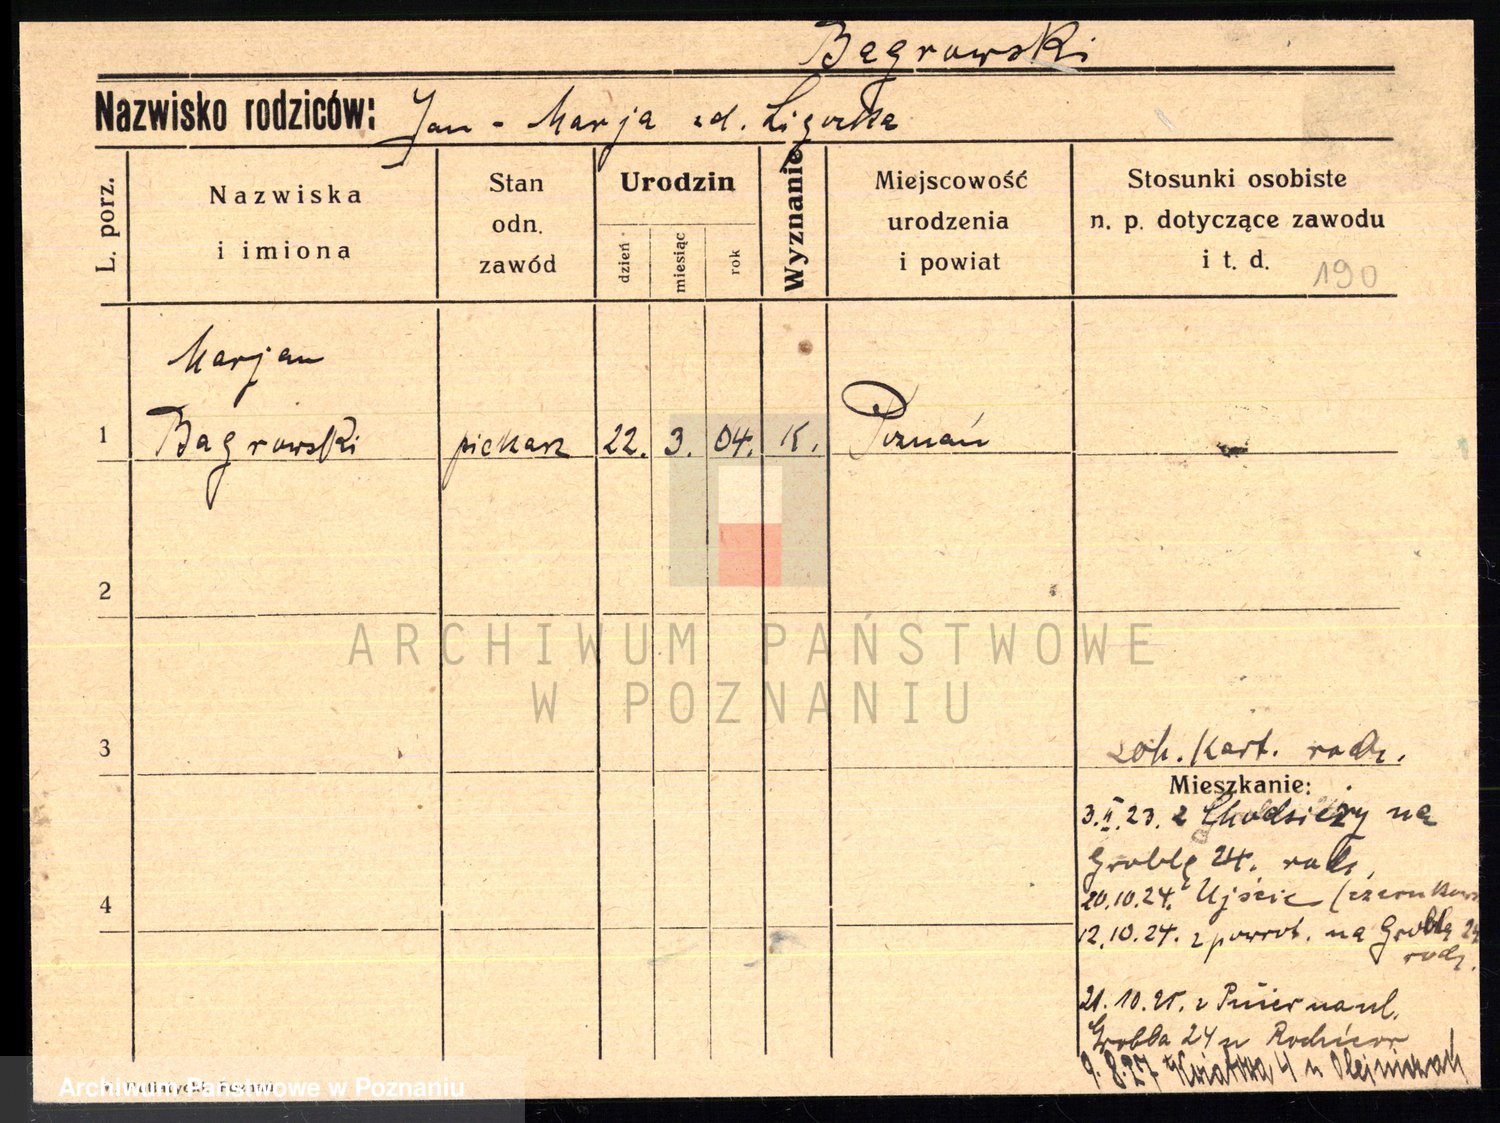 Bagrowski
Nazwisko rodziców: Jan - Marja zd. Ligocka
L. porz.
Nazwiska
i imiona
Stan
odn.
zawód
Urodzin
dzień
miesiąc
rok
Wyznanie
Miejscowość
urodzenia
i powiat
Stosunki osobiste
n. p. dotyczące zawodu
i t. d.
190
Marjan
1 Bagrowski piekarz 22. 3. 04. K. Poznań
2
ARCHIWUM PAŃSTWOWE
W POZNANIU
3
zob. Kart. rodz.
Mieszkanie:
3.II.23. z Chodzieży na
Groblę 24. rodz.
4
20.10.24. Ujście
12.10.24. z powrot. na Groblę 24
rodz.
21.10.25. z na ul.
Grobla 24 u Rodziców
9.8.27 Kwiatowa 4 u
Archiwum Państwowe w Poznaniu